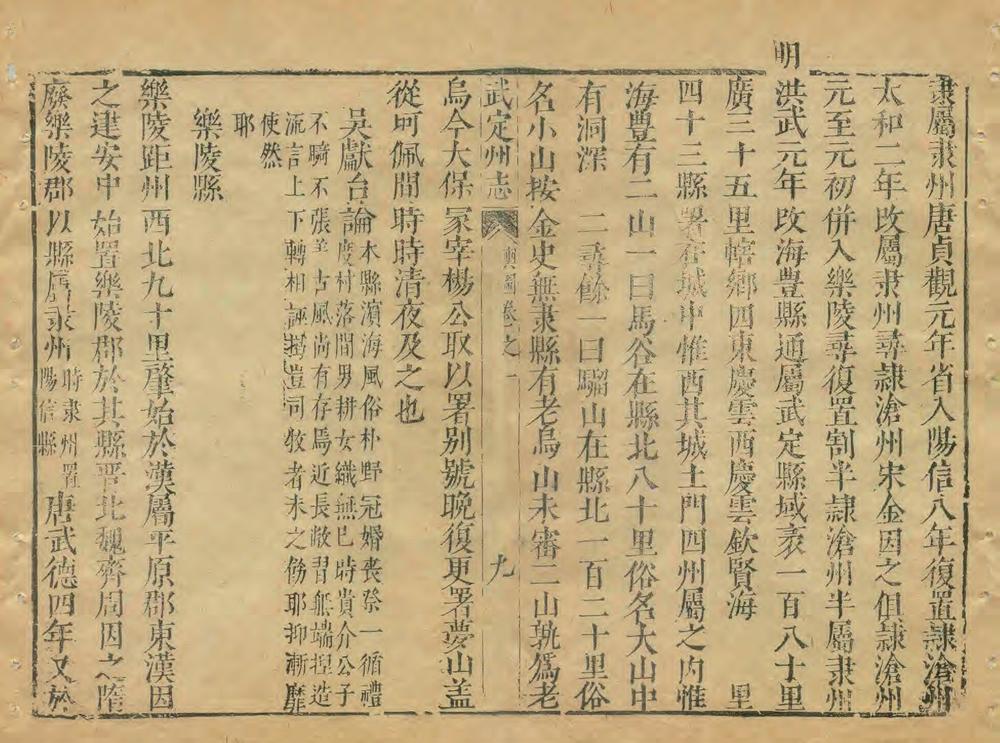 隶屬隶州唐貞觀元年省入陽信八年復置隷滄州
太和二年改屬隶州尋隷滄州宋金因之但隷滄州
元至元初併入樂陵尋復置割半隷滄州半屬隶州
明
洪武元年改海豊縣通屬武定縣域袤一百八十里
廣三十五里轄鄉四東慶雲西慶雲欽賢海　里
四十三縣署在城中惟西其城土門四州屬之内惟
海豊有二山一曰馬谷在縣北八十里俗名大山中
有洞深　二尋餘一曰騮山在縣北一百二十里俗
名小山按金史無隶縣有老烏山未審二山孰爲老
武定州志　輿圖卷之一　九
烏今大保冢宰楊公取以署别號晚復更署夢山盖
從珂佩間時時清夜及之也
吳獻台論本縣濵海風俗朴野冠婚喪祭一循禮
度村落間男耕女織無巳時貴介公子
不騎不張盖古風尚有存焉近長敝習無端揑造
流言上下轉相誣搆豈司牧者未之傷耶抑漸靡
使然
耶
樂陵縣
樂陵距州西北九十里肇始於漢屬平原郡東漢因
之建安中始置樂陵郡於其縣晋北魏齊周因之隋
廢樂陵郡以縣屬隶州時隶州置陽信縣唐武德四年又於